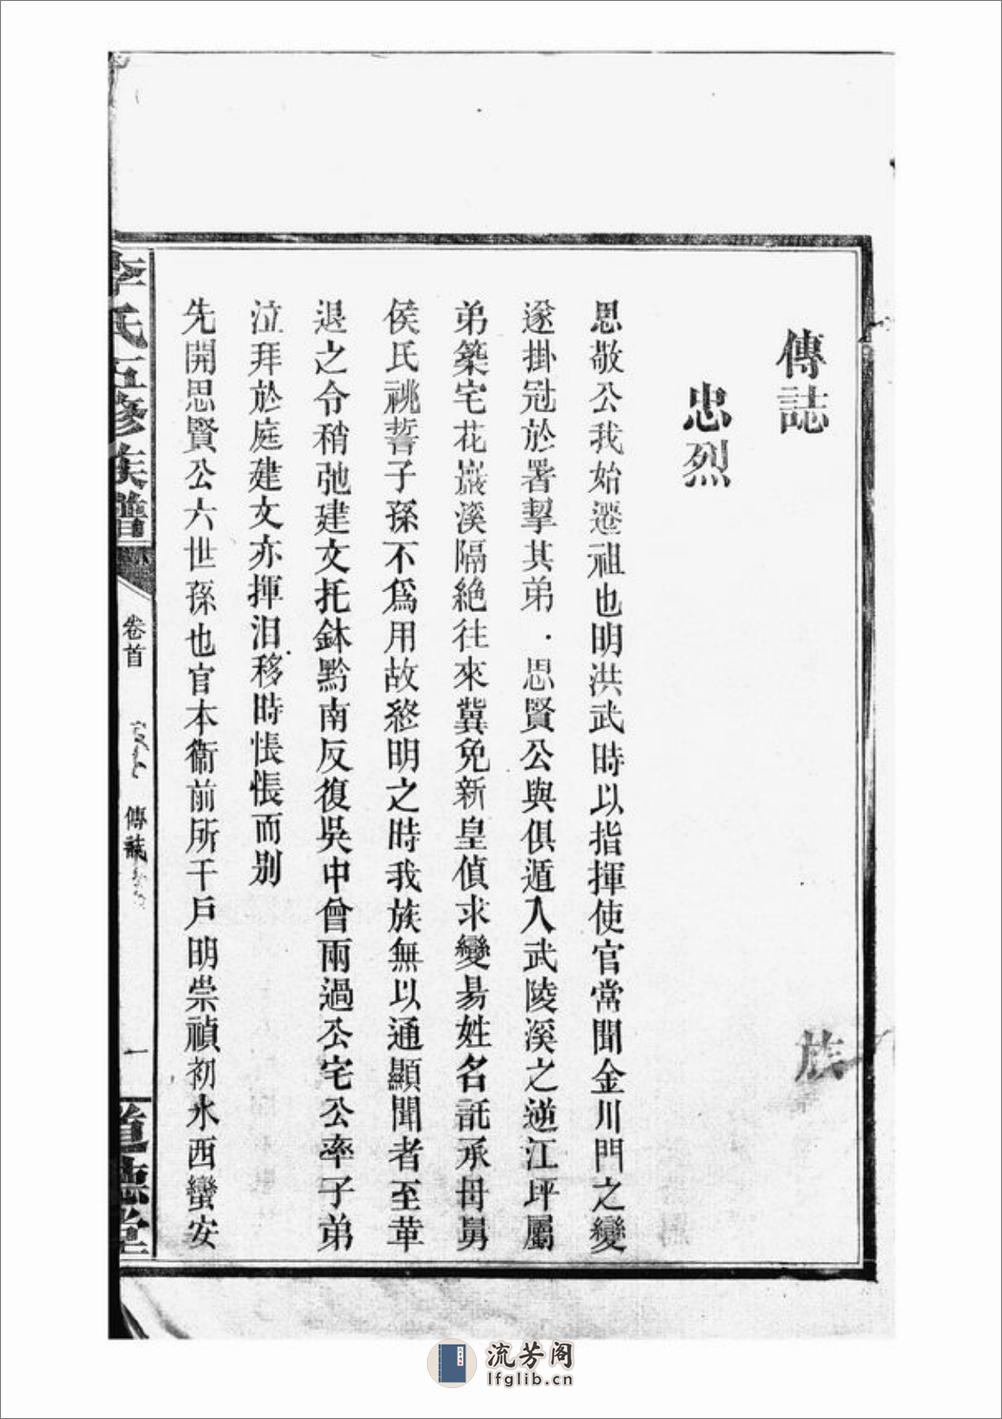 傳誌
族
忠烈
思敬公我始遷祖也明洪武時以指揮使官常聞金川門之變
遂掛冠於署挈其弟．思賢公與俱遁入武陵溪之逆江坪屬
弟築宅花巖溪隔絶往來冀免新皇偵求變易姓名託承母舅
侯氏祧誓子孫不爲用故終明之時我族無以通顯聞者至革
退之令稍弛建文托鉢黔南反復吳中曾兩過公宅公率子弟
泣拜於庭建文亦揮泪移時悵悵而別
先開思賢公六世孫也官本衞前所千戶明崇禎初水西蠻安
李氏五修族譜
卷首
傳誌
一
道德堂
流芳阁
lfglib.cn